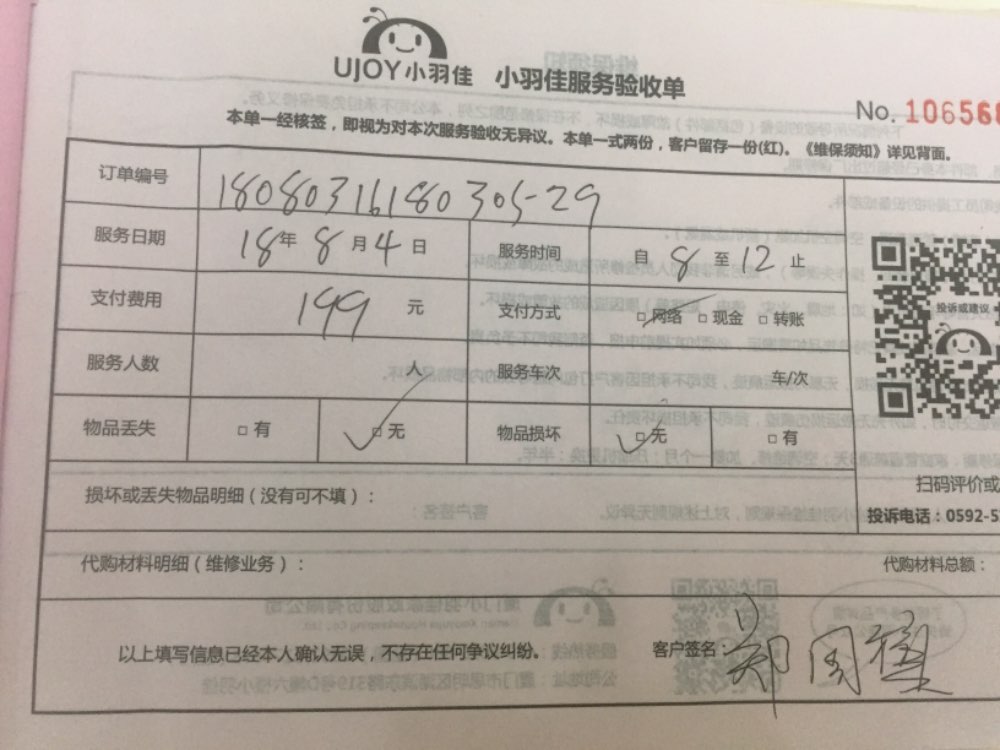 UJOY小羽佳 小羽佳服务验收单
No. 106566
本单一经核签，即视为对本次服务验收无异议。本单一式两份，客户留存一份(红)。《维保须知》详见背面。
订单编号 18080316180305-29
服务日期 18年8月4日 服务时间 自8至12止
支付费用 199元 支付方式 □网络 □现金 □转账
服务人数 人 服务车次 车/次
物品丢失 □有 □无 物品损坏 □无 □有
投诉或建议
扫码评价或
损坏或丢失物品明细（没有可不填）：
投诉电话：0592-5
代购材料明细（维修业务）： 代购材料总额：
以上填写信息已经本人确认无误，不存在任何争议纠纷。 客户签名：郑国